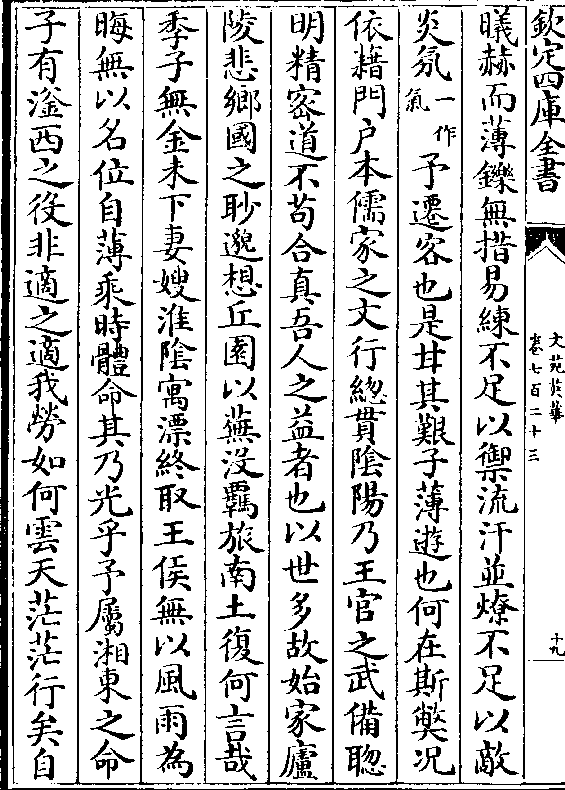 欽定四庫全書
文苑英華
卷七百二十三
十九
曦赫而薄鑠無措易練不足以禦流汗並燎不足以敵
炎氛一作氣予遷客也是甘其艱子薄遊也何在斯獘况
依藉門户本儒家之文行總貫陰陽乃王官之武備聰
明精宻道不苟合真吾人之益者也以世多故始家廬
陵悲鄉國之眇邈想丘園以蕪没覊旅南土復何言哉
季子無金未下妻嫂淮陰寓漂終取王侯無以風雨為
晦無以名位自薄乘時體命其乃光乎予屬湘東之命
子有滏西之役非適之適我勞如何雲天茫茫行矣自